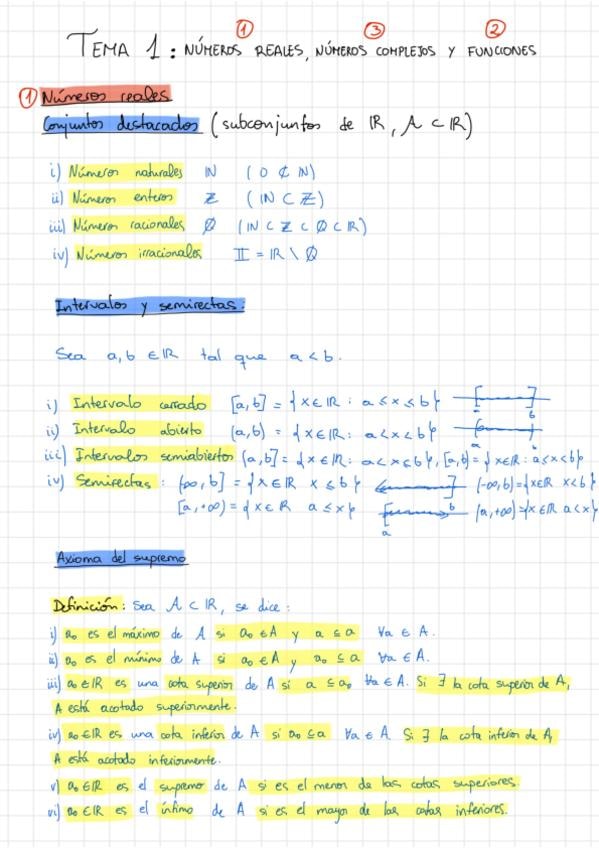 ① ③ ②
TEMA 1: NÚMEROS REALES, NÚMEROS COMPLEJOS Y FUNCIONES
① Números reales
Conjuntos destacados (subconjuntos de ℝ, A ⊂ ℝ)
i) Números naturales ℕ (0 ∉ ℕ)
ii) Números enteros ℤ (ℕ ⊂ ℤ)
iii) Números racionales ℚ (ℕ ⊂ ℤ ⊂ ℚ ⊂ ℝ)
iv) Números irracionales 𝕀 = ℝ \ ℚ
Intervalos y semirectas.
Sea a, b ∈ ℝ tal que a < b.
i) Intervalo cerrado [a, b] = {x ∈ ℝ : a ≤ x ≤ b} a b
ii) Intervalo abierto (a, b) = {x ∈ ℝ : a < x < b} a b
iii) Intervalos semiabiertos (a, b] = {x ∈ ℝ : a < x ≤ b}, [a, b) = {x ∈ ℝ : a ≤ x < b}
iv) Semirectas: (-∞, b] = {x ∈ ℝ x ≤ b} b (-∞, b) = {x ∈ ℝ x < b}
[a, +∞) = {x ∈ ℝ a ≤ x} a (a, +∞) = {x ∈ ℝ a < x}
Axioma del supremo
Definición: Sea A ⊂ ℝ, se dice:
i) a₀ es el máximo de A si a₀ ∈ A y a ≤ a ∀a ∈ A.
ii) a₀ es el mínimo de A si a₀ ∈ A y a₀ ≤ a ∀a ∈ A.
iii) a₀ ∈ ℝ es una cota superior de A si a ≤ a₀ ∀a ∈ A. Si ∃ la cota superior de A,
A está acotado superiormente.
iv) a₀ ∈ ℝ es una cota inferior de A si a₀ ≤ a ∀a ∈ A. Si ∃ la cota inferior de A,
A está acotado inferiormente.
v) a₀ ∈ ℝ es el supremo de A si es el menor de las cotas superiores.
vi) a₀ ∈ ℝ es el ínfimo de A si es el mayor de las cotas inferiores.